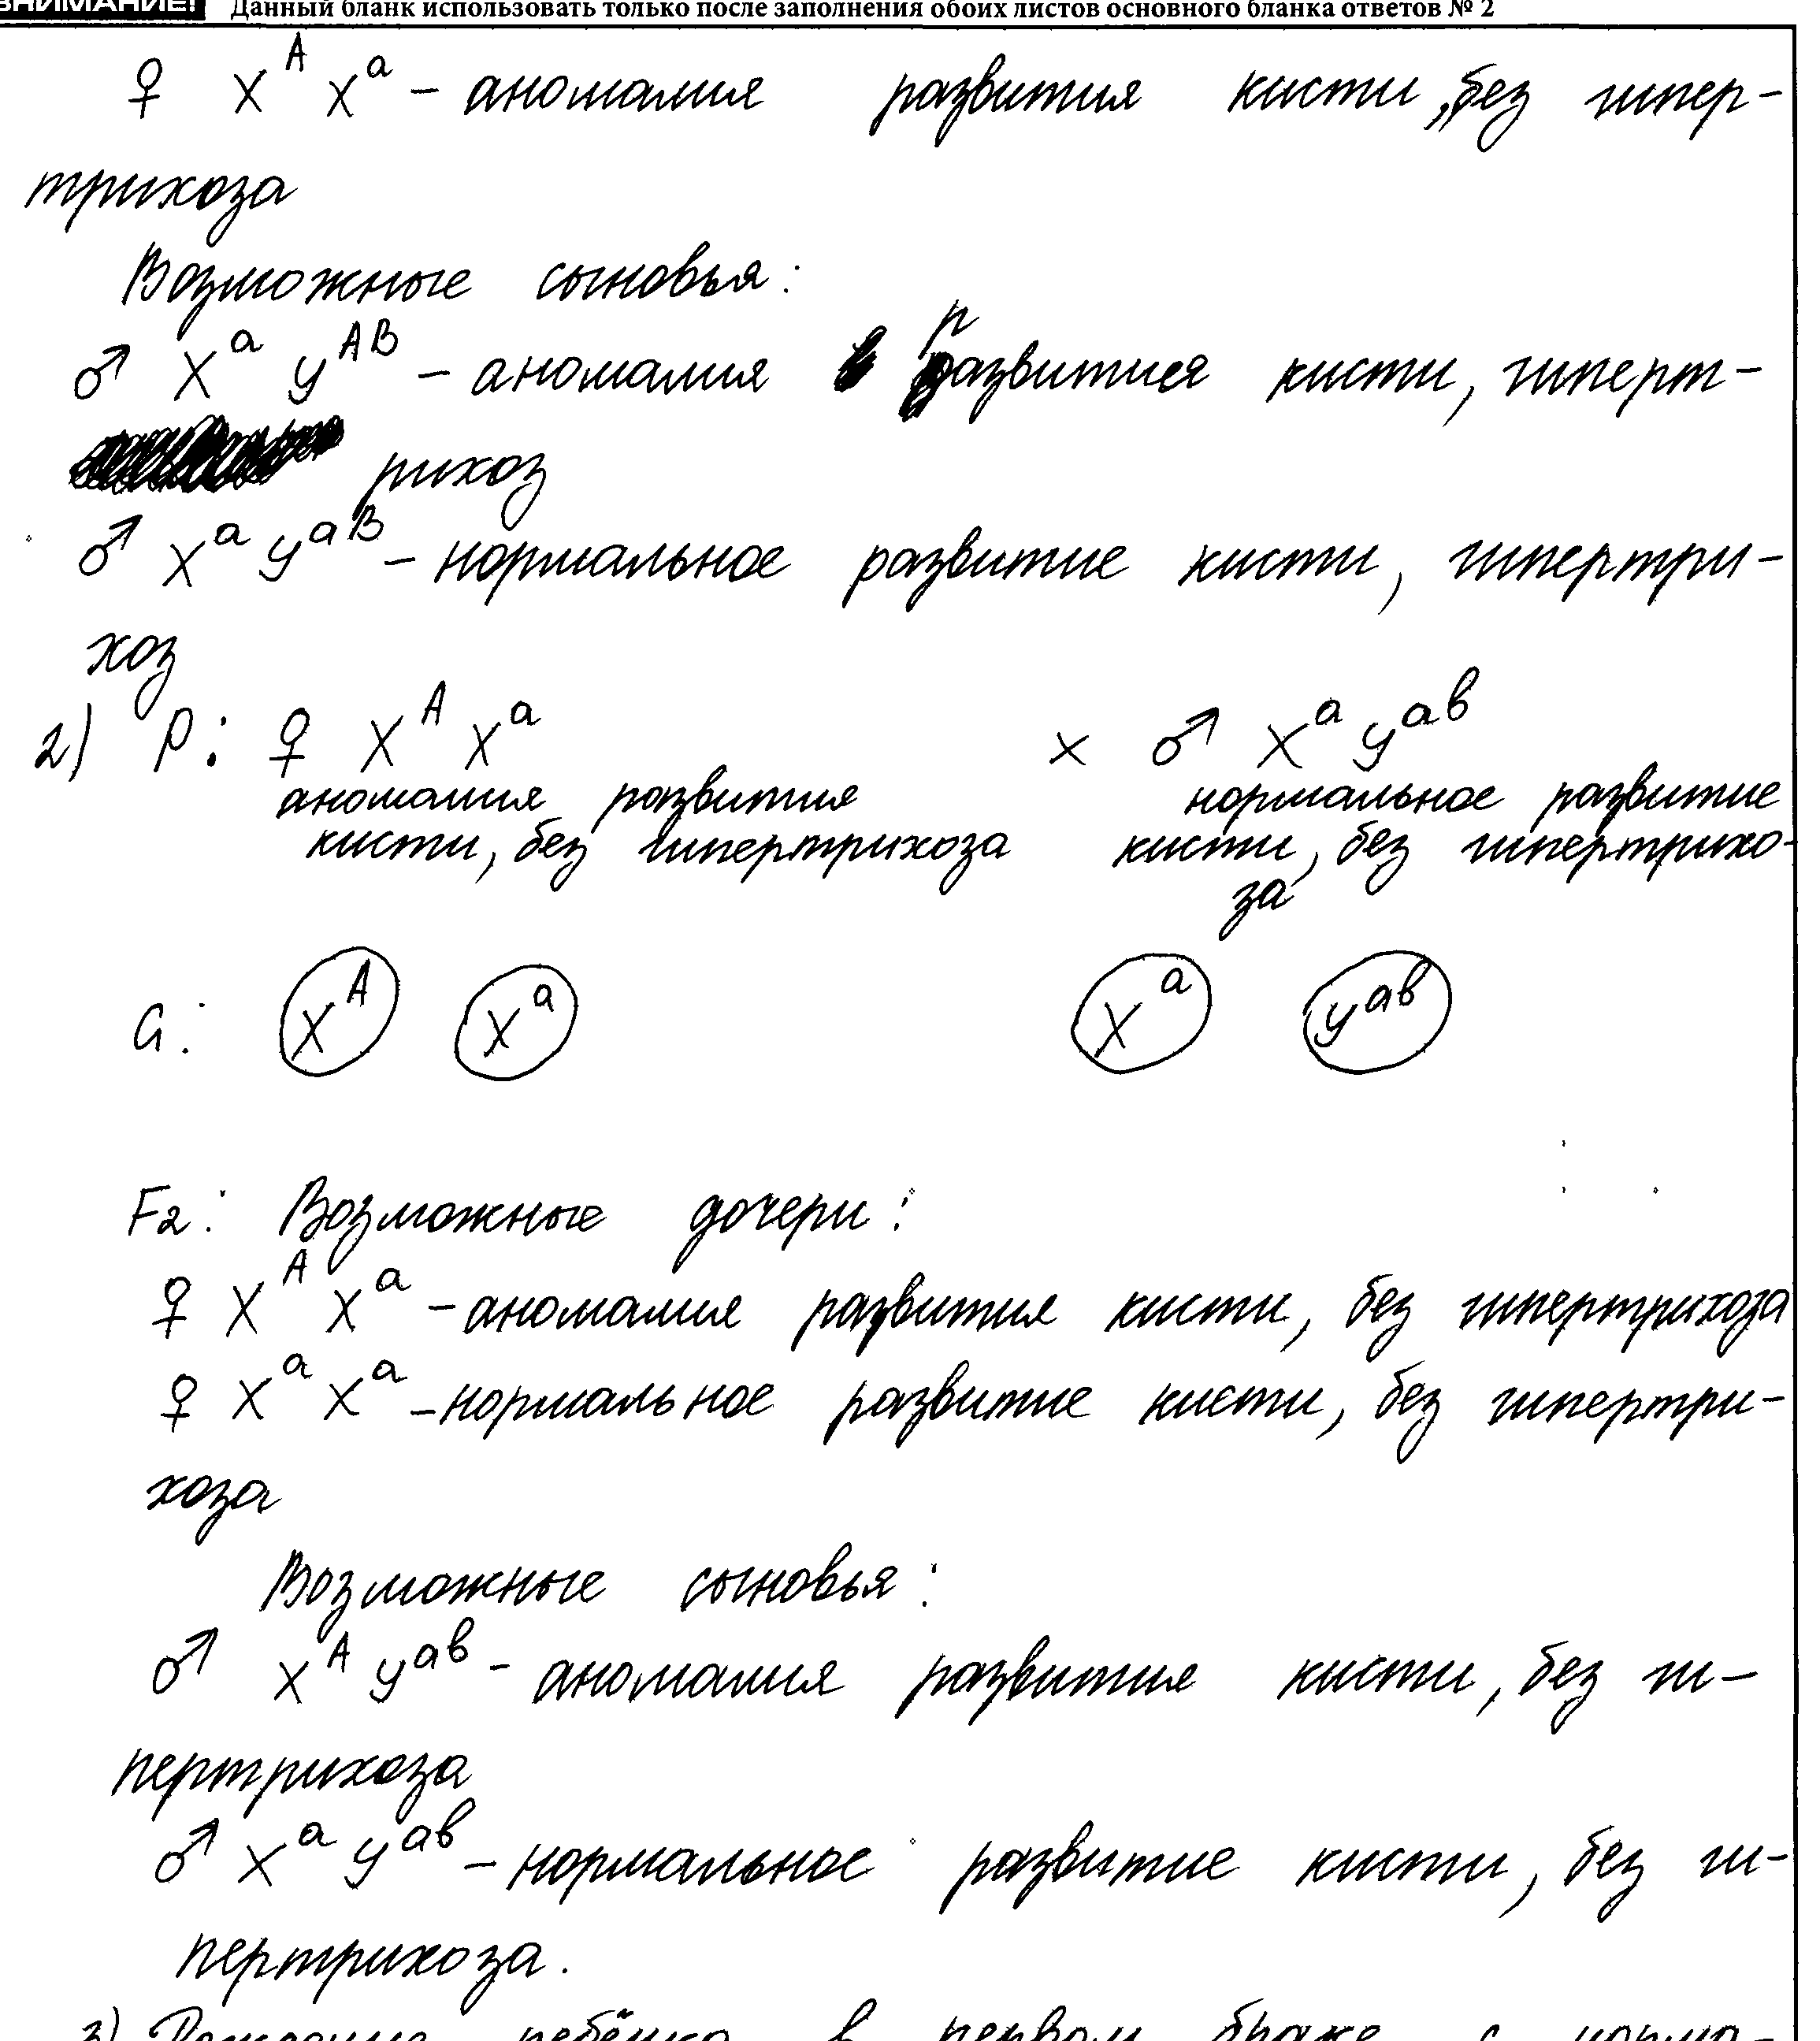 ВНИМАНИЕ! Данный бланк использовать только после заполнения обоих листов основного бланка ответов № 2
♀ X^A X^a – аномалия развития кисти, без гипер-
трихоза
Возможные сыновья:
♂ X^a y^AB – аномалия развития кисти, гиперт-
рихоз
♂ X^a y^aB – нормальное развитие кисти, гипертри-
хоз
2) P: ♀ X^A X^a x ♂ X^a y^ab
аномалия развития нормальное развитие
кисти, без гипертрихоза кисти, без гипертрихо-
за
G: X^A X^a X^a y^ab
F2: Возможные дочери:
♀ X^A X^a – аномалия развития кисти, без гипертрихоза
♀ X^a X^a – нормальное развитие кисти, без гипертри-
хоза
Возможные сыновья:
♂ X^A y^ab – аномалия развития кисти, без ги-
пертрихоза
♂ X^a y^ab – нормальное развитие кисти, без ги-
пертрихоза.
3) Рождение ребёнка в первом браке с норма-